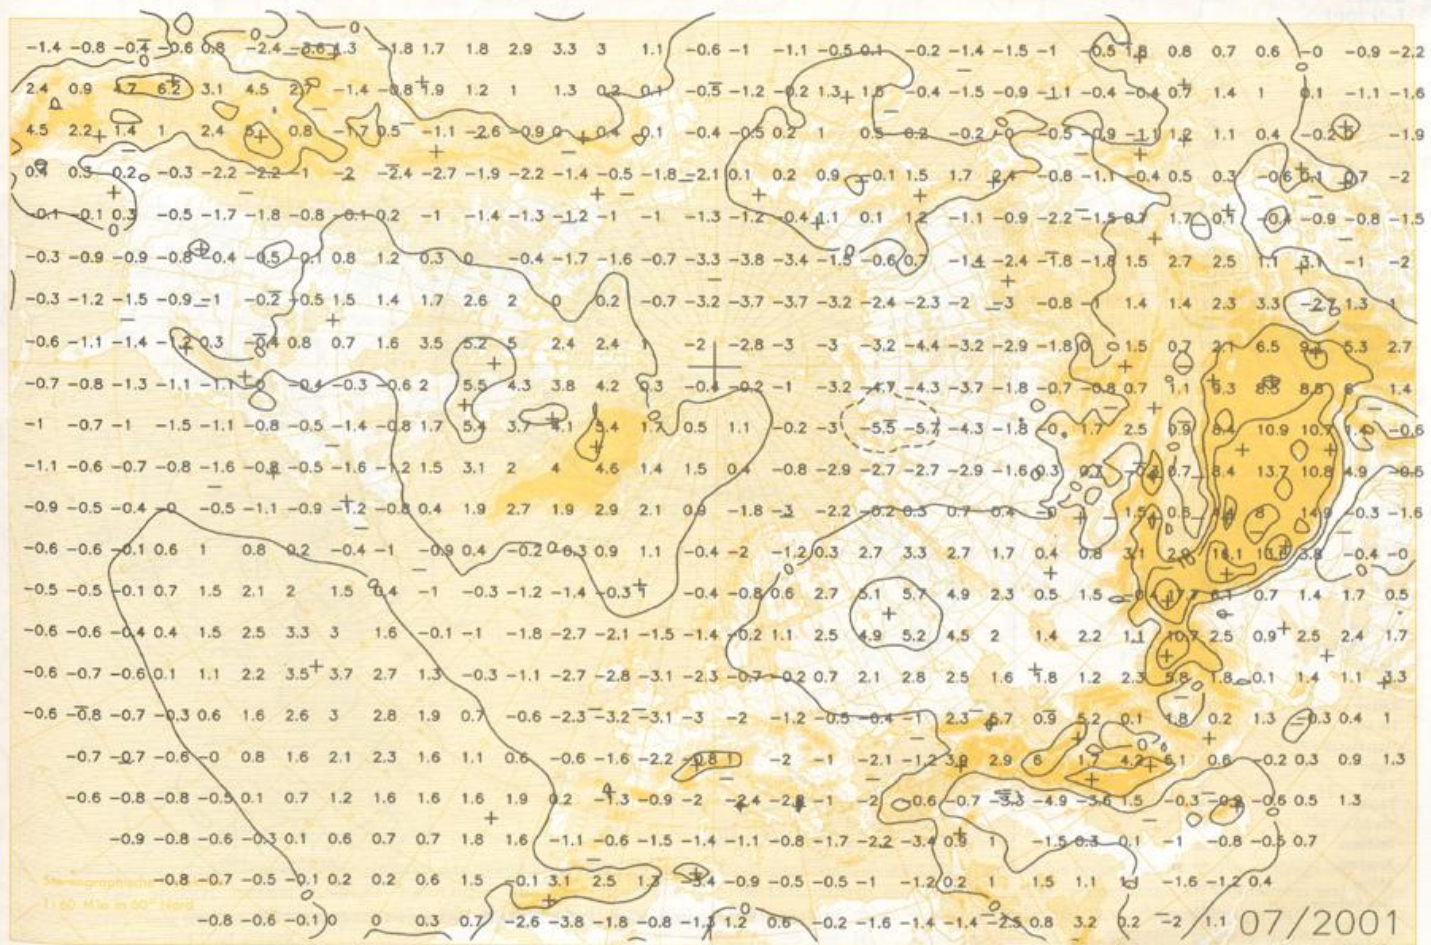 -1.4 -0.8 -0.4 -0.6 0.8 -2.4 -3.6 1.3 -1.8 1.7 1.8 2.9 3.3 3 1.1 -0.6 -1 -1.1 -0.5 0.1 -0.2 -1.4 -1.5 -1 -0.5 1.8 0.8 0.7 0.6 -0 -0.9 -2.2
2.4 0.9 4.7 6.2 3.1 4.5 2.7 -1.4 -0.8 1.9 1.2 1 1.3 0.2 0.1 -0.5 -1.2 -0.2 1.3 1.6 -0.4 -1.5 -0.9 -1.1 -0.4 -0.4 0.7 1.4 1 0.1 -1.1 -1.6
4.5 2.2 1.4 1 2.4 0.8 -1.7 0.5 -1.1 -2.6 -0.9 0 0.4 0.1 -0.4 -0.5 0.2 1 0.5 0.2 -0.2 -0 -0.5 -0.9 -1.1 1.2 1.1 0.4 -0.2 -1.9
0.4 0.3 0.2 -0.3 -2.2 -2.2 1 -2 -2.4 -2.7 -1.9 -2.2 -1.4 -0.5 -1.8 -2.1 0.1 0.2 0.9 -0.1 1.5 1.7 2.4 -0.8 -1.1 -0.4 0.5 0.3 -0.6 0.1 0.7 -2
-0.1 -0.1 0.3 -0.5 -1.7 -1.8 -0.8 -0.1 0.2 -1 -1.4 -1.3 -1.2 -1 -1 -1.3 -1.2 -0.4 1.1 0.1 1.2 -1.1 -0.9 -2.2 -1.5 0.7 1.7 0.1 -0.4 -0.9 -0.8 -1.5
-0.3 -0.9 -0.9 -0.8 -0.4 -0.5 -0.1 0.8 1.2 0.3 0 -0.4 -1.7 -1.6 -0.7 -3.3 -3.8 -3.4 -1.5 -0.6 0.7 -1.4 -2.4 -1.8 -1.8 1.5 2.7 2.5 1.1 3.1 -1 -2
-0.3 -1.2 -1.5 -0.9 -1 -0.2 -0.5 1.5 1.4 1.7 2.6 2 0 0.2 -0.7 -3.2 -3.7 -3.7 -3.2 -2.4 -2.3 -2 -3 -0.8 -1 1.4 1.4 2.3 3.3 -2.7 1.3 1
-0.6 -1.1 -1.4 -1.2 0.3 -0.4 0.8 0.7 1.6 3.5 5.2 5 2.4 2.4 1 -2 -2.8 -3 -3 -3.2 -4.4 -3.2 -2.9 -1.8 0 1.5 0.7 2.1 6.5 5.3 2.7
-0.7 -0.8 -1.3 -1.1 -1.1 0 -0.4 -0.3 -0.6 2 5.5 4.3 3.8 4.2 0.3 -0.4 -0.2 -1 -3.2 -4.7 -4.3 -3.7 -1.8 -0.7 -0.8 0.7 1.1 9.3 8.5 8.8 6 1.4
-1 -0.7 -1 -1.5 -1.1 -0.8 -0.5 -1.4 -0.8 1.7 5.4 3.7 4.1 5.4 1.7 0.5 1.1 -0.2 -3 -5.5 -5.7 -4.3 -1.8 -0 1.7 2.5 0.9 8.4 10.9 10.7 1.4 -0.6
-1.1 -0.6 -0.7 -0.8 -1.6 -0.8 -0.5 -1.6 -1.2 1.5 3.1 2 4 4.6 1.4 1.5 0.4 -0.8 -2.9 -2.7 -2.7 -2.9 -1.6 0.3 0.7 0.7 8.4 13.7 10.8 4.9 -0.5
-0.9 -0.5 -0.4 -0 -0.5 -1.1 -0.9 -1.2 -0.8 0.4 1.9 2.7 1.9 2.9 2.1 0.9 -1.8 -3 -2.2 -0.2 0.3 0.7 0.4 -0 1 1.5 0.6 8 14.9 -0.3 -1.6
-0.6 -0.6 -0.1 0.6 1 0.8 0.2 -0.4 -1 -0.9 0.4 -0.2 -0.3 0.9 1.1 -0.4 -2 -1.2 0.3 2.7 3.3 2.7 1.7 0.4 0.8 3.1 2.9 14.1 3.8 -0.4 -0
-0.5 -0.5 -0.1 0.7 1.5 2.1 2 1.5 0.4 -1 -0.3 -1.2 -1.4 -0.3 1 -0.4 -0.8 0.6 2.7 5.1 5.7 4.9 2.3 0.5 1.5 -0.4 17.7 6.1 0.7 1.4 1.7 0.5
-0.6 -0.6 -0.4 0.4 1.5 2.5 3.3 3 1.6 -0.1 -1 -1.8 -2.7 -2.1 -1.5 -1.4 -0.2 1.1 2.5 4.9 5.2 4.5 2 1.4 2.2 1.1 10.7 2.5 0.9 2.5 2.4 1.7
-0.6 -0.7 -0.6 0.1 1.1 2.2 3.5 3.7 2.7 1.3 -0.3 -1.1 -2.7 -2.8 -3.1 -2.3 -0.7 -0.2 0.7 2.1 2.8 2.5 1.6 1.8 1.2 2.3 5.8 1.8 0.1 1.4 1.1 3.3
-0.6 -0.8 -0.7 -0.3 0.6 1.6 2.6 3 2.8 1.9 0.7 -0.6 -2.3 -3.2 -3.1 -3 -2 -1.2 -0.5 -0.4 -1 2.3 5.7 0.9 5.2 0.1 1.8 0.2 1.3 -0.3 0.4 1
-0.7 -0.7 -0.6 -0 0.8 1.6 2.1 2.3 1.6 1.1 0.6 -0.6 -1.6 -2.2 -0.8 1 -2 -1 -2.1 -1.2 3.9 2.9 6 1.7 4.2 6.1 0.6 -0.2 0.3 0.9 1.3
-0.6 -0.8 -0.8 -0.5 0.1 0.7 1.2 1.6 1.6 1.6 1.9 0.2 -1.3 -0.9 -2 -2.4 -2.8 -1 -2 -0.6 -0.7 -3.3 -4.9 -3.6 1.5 -0.3 -0.9 -0.6 0.5 1.3
-0.9 -0.8 -0.6 -0.3 0.1 0.6 0.7 0.7 1.8 1.6 -1.1 -0.6 -1.5 -1.4 -1.1 -0.8 -1.7 -2.2 -3.4 0.9 1 -1.5 0.3 0.1 -1 -0.8 -0.5 0.7
-0.8 -0.7 -0.5 -0.1 0.2 0.2 0.6 1.5 -0.1 3.1 2.5 1.3 -3.4 -0.9 -0.5 -0.5 -1 -1.2 0.2 1 1.5 1.1 1.1 -1.6 -1.2 0.4
Stereographische
1:60 Mio in 60° Nord
-0.8 -0.6 -0.1 0 0 0.3 0.7 -2.6 -3.8 -1.8 -0.8 -1.3 1.2 0.6 -0.2 -1.6 -1.4 -1.4 -2.5 0.8 3.2 0.2 -2 1.1
07/2001